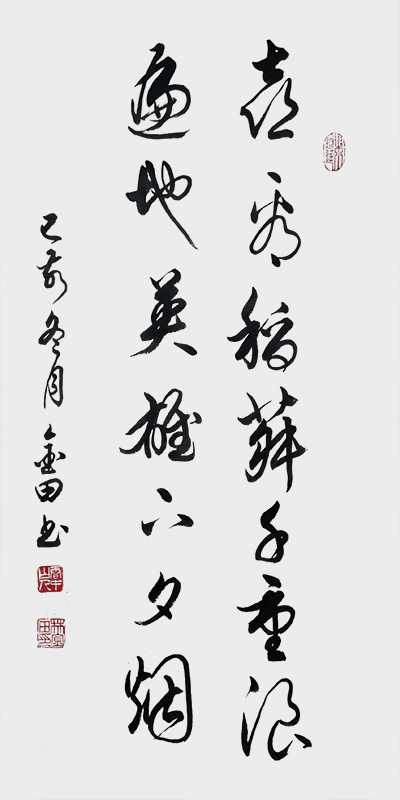 喜看稻菽千重浪
遍地英雄下夕烟
己亥冬月金田书